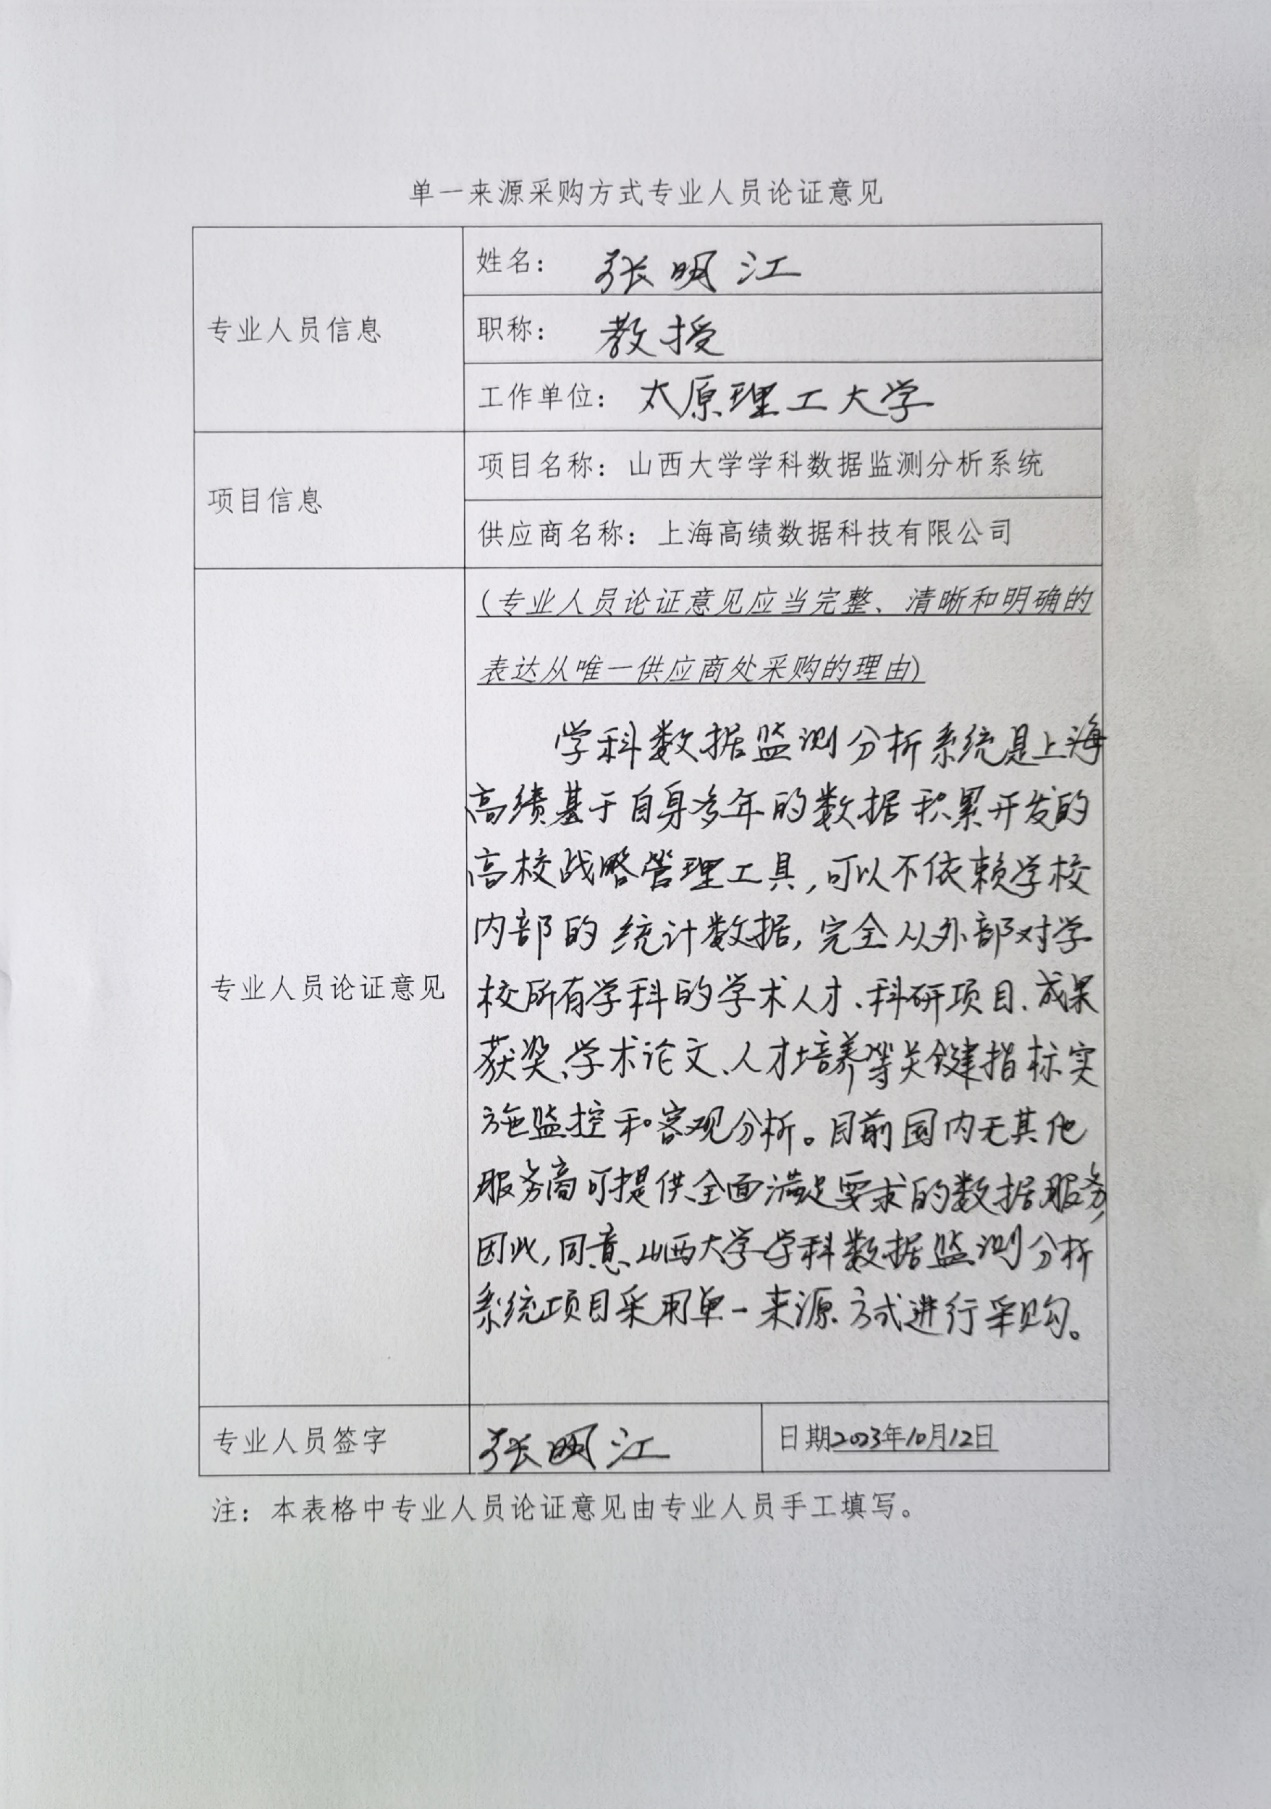 单一来源采购方式专业人员论证意见
专业人员信息
姓名： 张明江
职称： 教授
工作单位： 太原理工大学
项目信息
项目名称：山西大学学科数据监测分析系统
供应商名称：上海高绩数据科技有限公司
专业人员论证意见
(专业人员论证意见应当完整、清晰和明确的
表达从唯一供应商处采购的理由)
学科数据监测分析系统是上海
高绩基于自身多年的数据积累开发的
高校战略管理工具,可以不依赖学校
内部的统计数据,完全从外部对学
校所有学科的学术人才、科研项目、成果
获奖、学术论文、人才培养等关键指标实
施监控和客观分析。目前国内无其他
服务商可提供全面满足要求的数据服务,
因此,同意山西大学学科数据监测分析
系统项目采用单一来源方式进行采购。
专业人员签字
张明江
日期2023年10月12日
注：本表格中专业人员论证意见由专业人员手工填写。